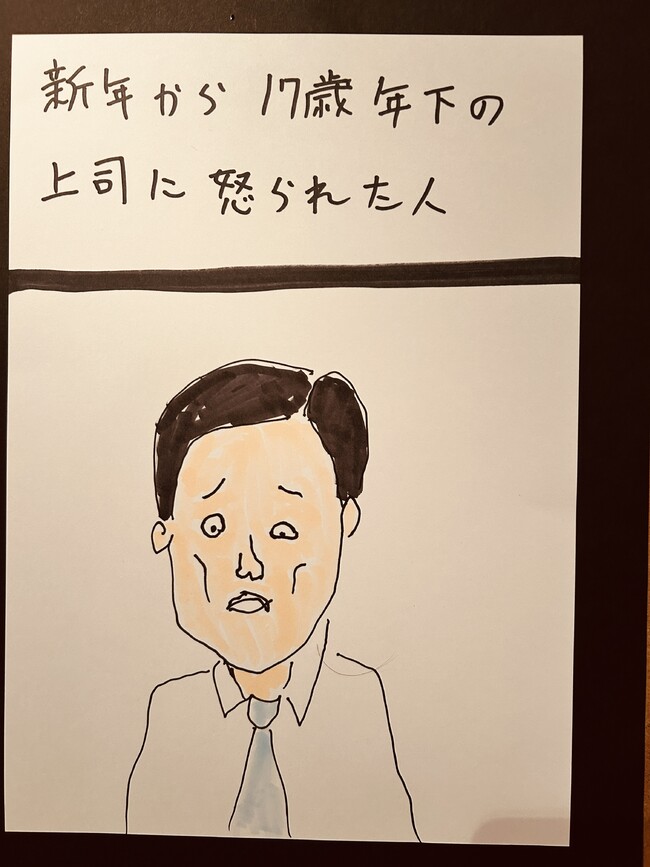 新年から 17歳年下の
上司に怒られた人